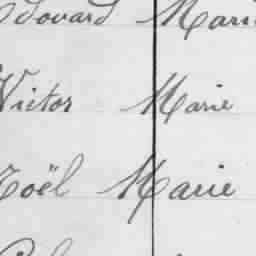 Edouard Marie
Victor Marie
Noël Marie